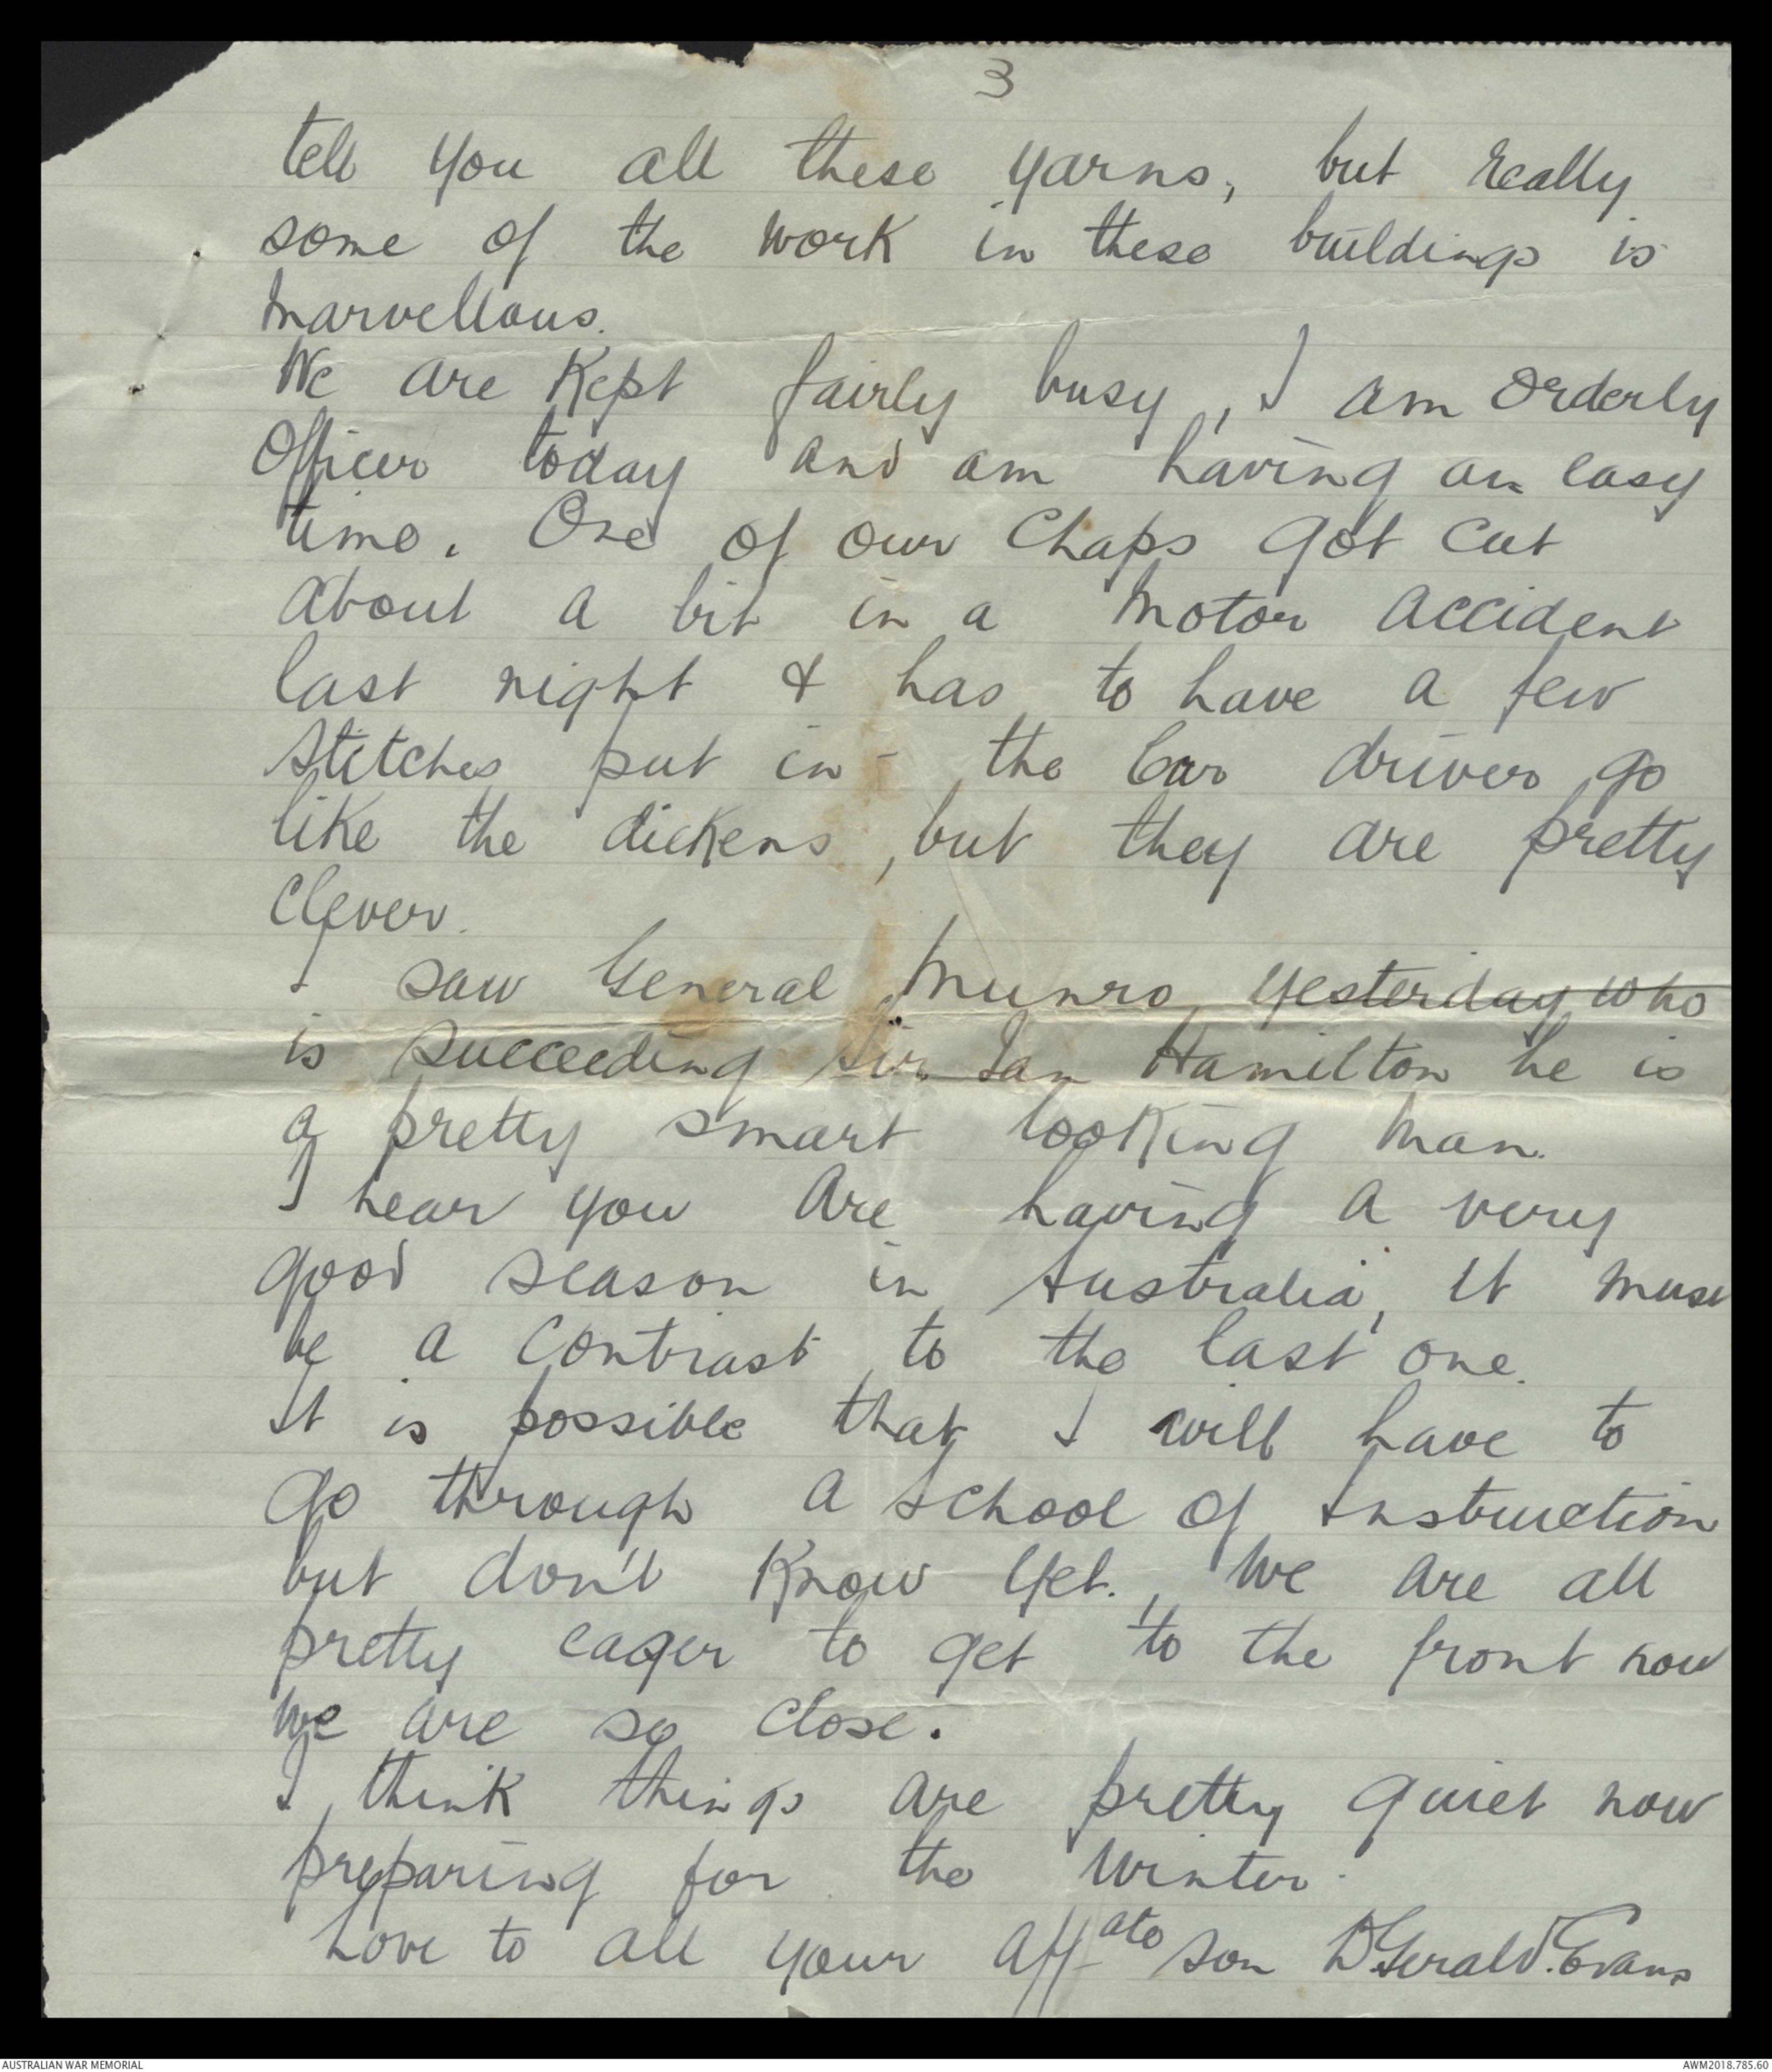 3
tell you all these yarns, but really
some of the work in these buildings is
marvellous.
We are kept fairly busy, I am Orderly
Officer today and am having an easy
time. One of our Chaps got cut
about a bit in a motor accident
last night & has to have a few
stitches put in - the Car driver go
like the dickens, but they are pretty
Clever.
I saw General Munro yesterday who
is succeeding Sir Ian Hamilton he is
a pretty smart looking man.
I hear you are having a very
good season in Australia, it must
be a contrast to the last one.
It is possible that I will have to
go through a School of Instruction
but don't know yet. We are all
pretty eager to get to the front now
we are so close.
I think things are pretty quiet now
preparing for the winter.
Love to all your affate son D Gerald Evans
AUSTRALIAN WAR MEMORIAL
AWM2018.785.60